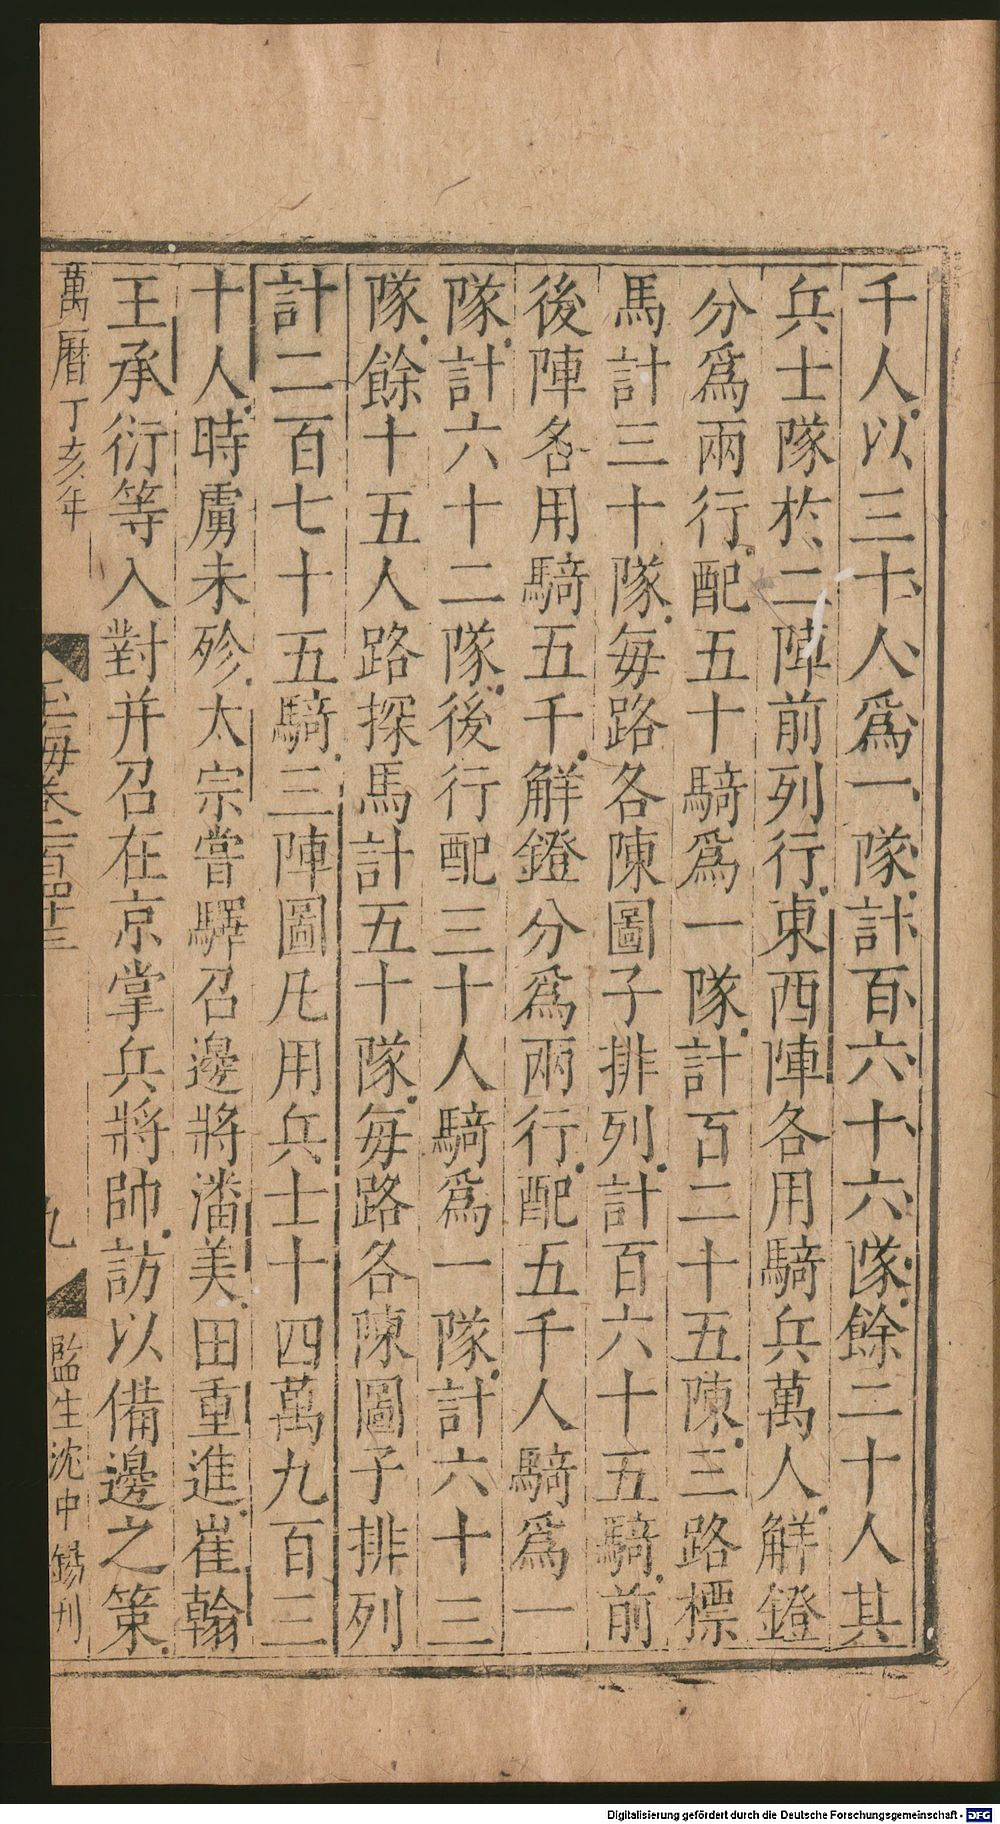 千人以三十人爲一隊計百六十六隊餘二十人其
兵士隊於二陣前列行東西陣各用騎兵萬人解鐙
分爲兩行配五十騎爲一隊計百二十五陳三路標
馬計三十隊每路各陳圖子排列計百六十五騎前
後陣各用騎五千解鐙分爲兩行配五千人騎爲一
隊計六十二隊後行配三十人騎爲一隊計六十三
隊餘十五人路探馬計五十隊每路各陳圖子排列
計二百七十五騎三陣圖凡用兵士十四萬九百三
十人時虜未殄太宗嘗驛召邊將潘美田重進崔翰
王承衍等入對并召在京掌兵將帥訪以備邊之策
萬曆丁亥年
玉海卷一百四十三
九
監生沈中錫刊
Digitalisierung gefördert durch die Deutsche Forschungsgemeinschaft - DFG